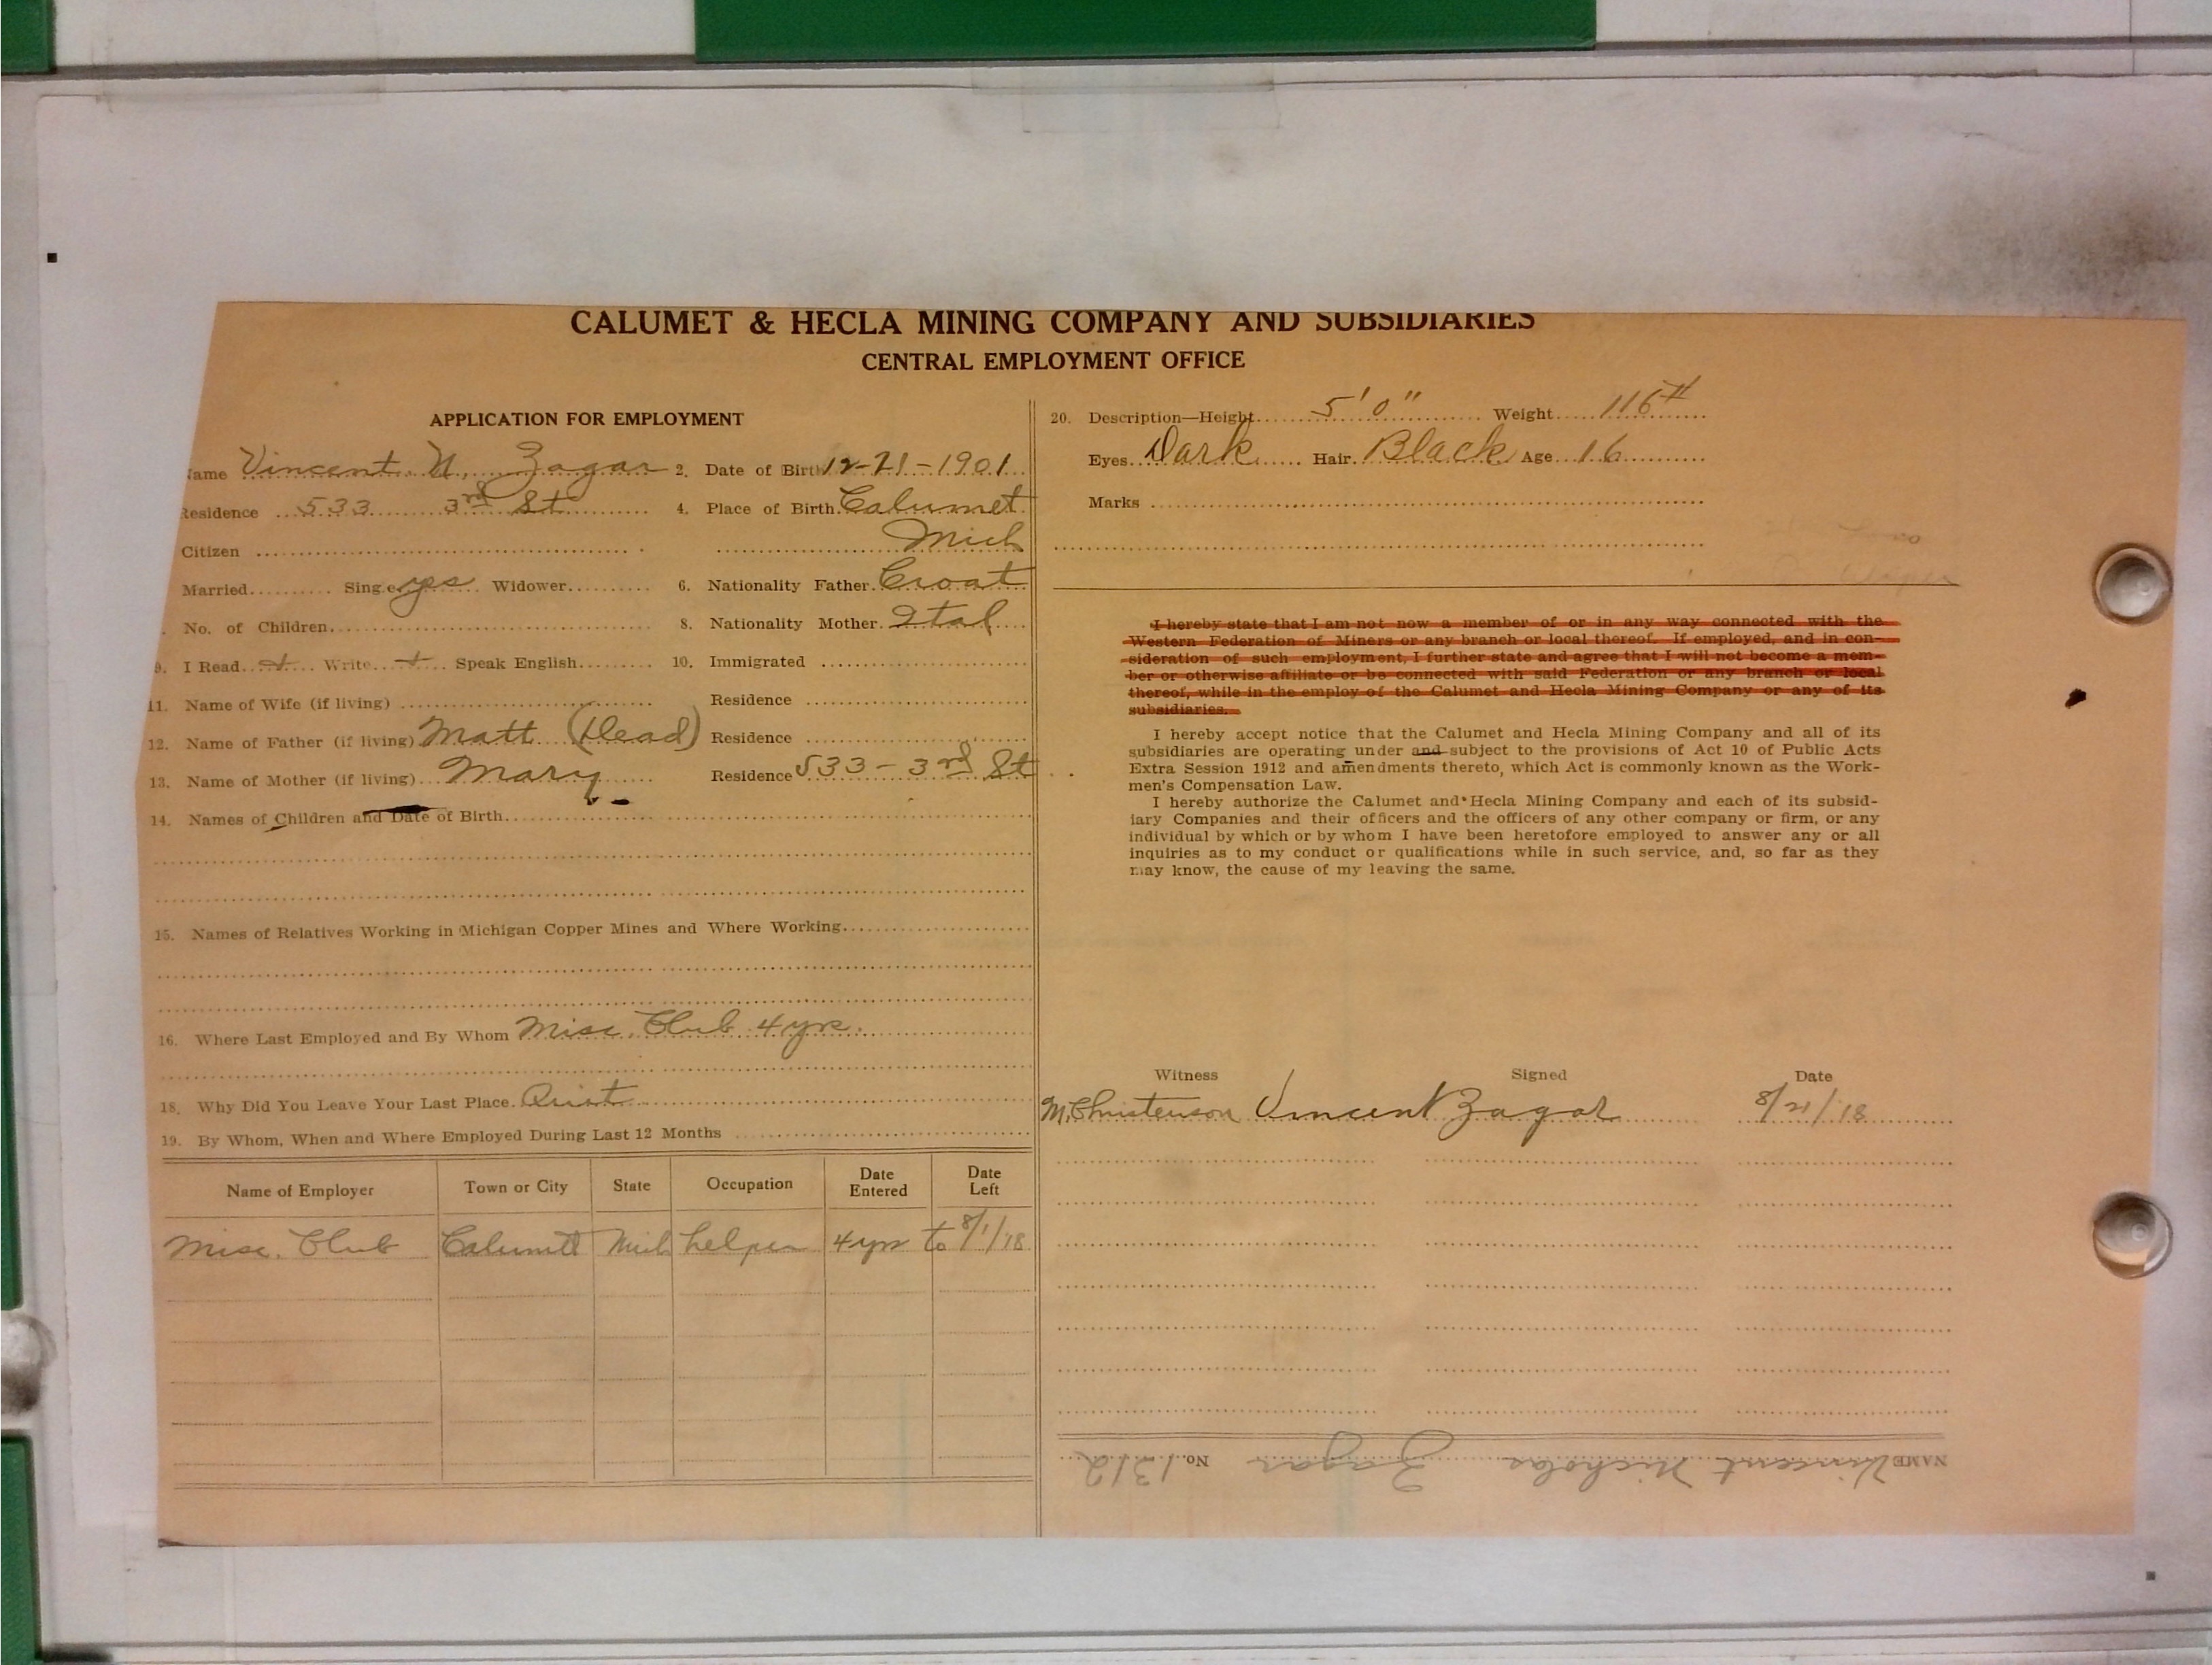 CALUMET & HECLA MINING COMPANY AND SUBSIDIARIES
CENTRAL EMPLOYMENT OFFICE
APPLICATION FOR EMPLOYMENT
Name Vincent N. Zagar 2. Date of Birth 12-21-1901
Residence 533 3rd St 4. Place of Birth Calumet
Citizen Mich
Married Single yes Widower 6. Nationality Father Croat
No. of Children 8. Nationality Mother Ital
9. I Read + Write + Speak English 10. Immigrated
11. Name of Wife (if living) Residence
12. Name of Father (if living) Matt (Dead) Residence
13. Name of Mother (if living) Mary Residence 533-3rd St
14. Names of Children and Date of Birth
15. Names of Relatives Working in Michigan Copper Mines and Where Working
16. Where Last Employed and By Whom Misc. Club 4 yrs.
18. Why Did You Leave Your Last Place. Quit
19. By Whom, When and Where Employed During Last 12 Months
Name of Employer Town or City State Occupation Date Entered Date Left
Misc. Club Calumet Mich helper 4 yrs to 8/1/18
20. Description—Height 5'0" Weight 116#
Eyes Dark Hair Black Age 16
Marks
I hereby state that I am not now a member of or in any way connected with the
Western Federation of Miners or any branch or local thereof. If employed, and in con-
sideration of such employment, I further state and agree that I will not become a mem-
ber or otherwise affiliate or be connected with said Federation or any branch or local
thereof, while in the employ of the Calumet and Hecla Mining Company or any of its
subsidiaries.
I hereby accept notice that the Calumet and Hecla Mining Company and all of its
subsidiaries are operating under and subject to the provisions of Act 10 of Public Acts
Extra Session 1912 and amendments thereto, which Act is commonly known as the Work-
men's Compensation Law.
I hereby authorize the Calumet and Hecla Mining Company and each of its subsid-
iary Companies and their officers and the officers of any other company or firm, or any
individual by which or by whom I have been heretofore employed to answer any or all
inquiries as to my conduct or qualifications while in such service, and, so far as they
may know, the cause of my leaving the same.
Witness Signed Date
M. Christenson Vincent Zagar 8/21/18
NAME Vincent Nicholas Zagar No. 1312